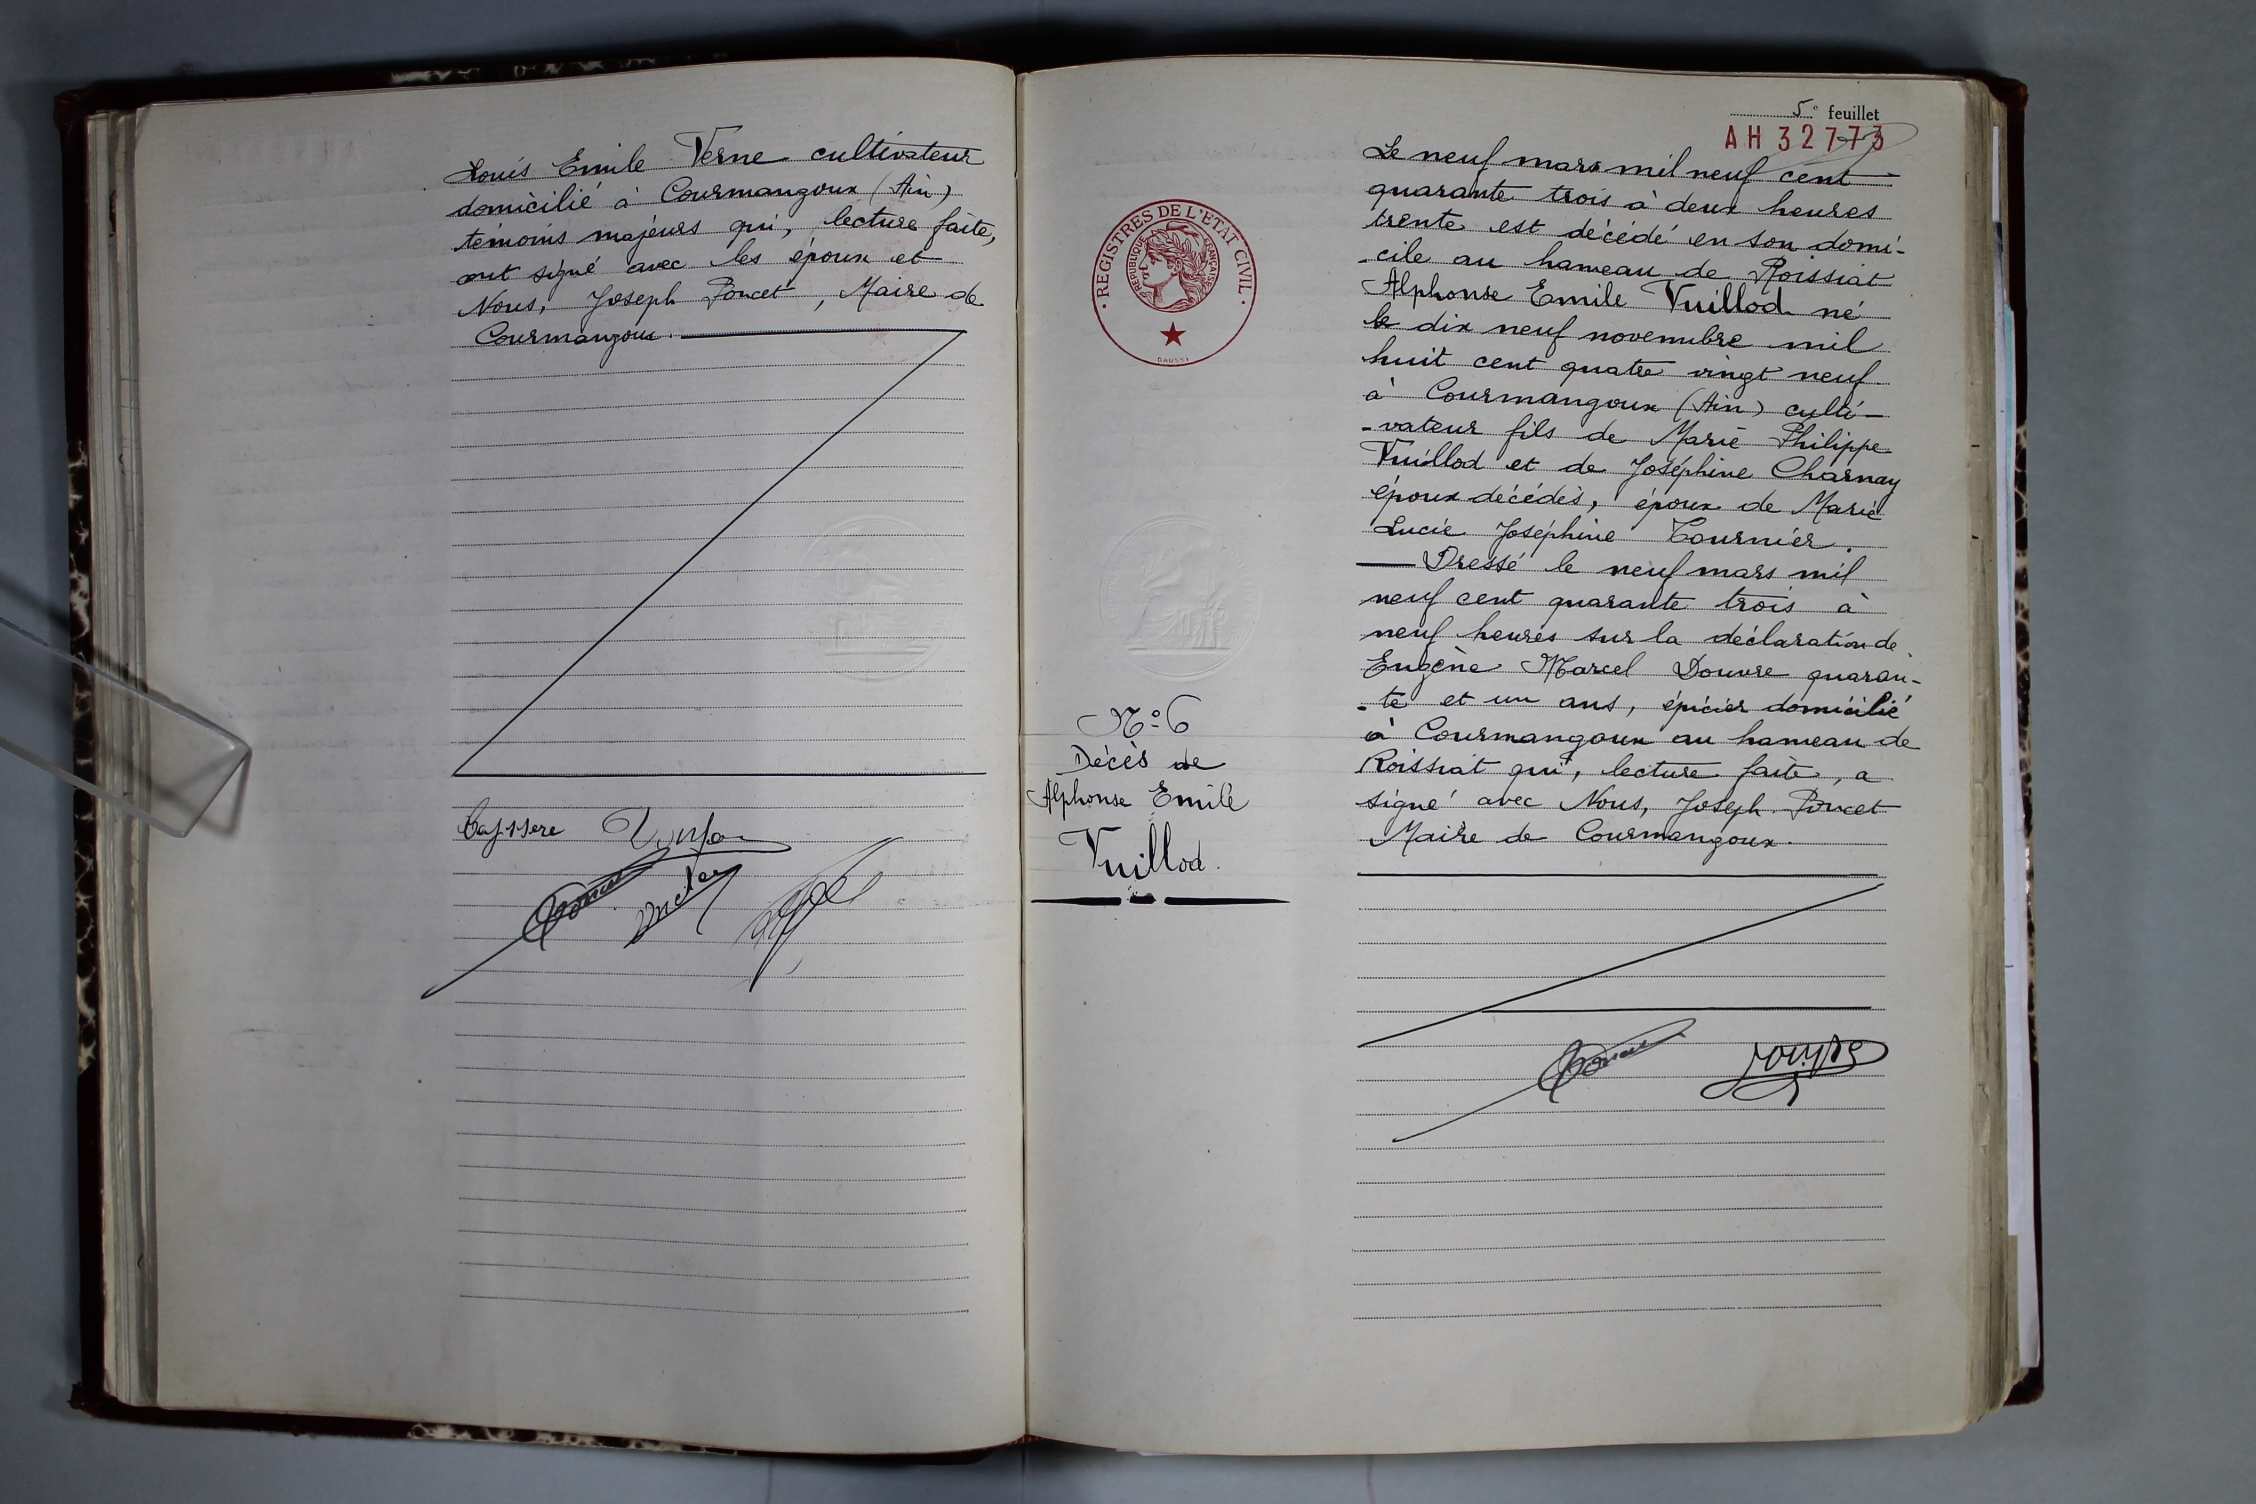 Louis Emile Verne cultivateur
domicilié à Courmangoux (Ain)
témoins majeurs qui, lecture faite,
ont signé avec les époux et
Nous, Joseph Poncet, Maire de
Courmangoux.
5e feuillet
AH 32773
REGISTRES DE L'ETAT CIVIL
REPUBLIQUE FRANÇAISE
N° 6
Décès de
Alphonse Emile
Vuillod.
Le neuf mars mil neuf cent
quarante trois à deux heures
trente est décédé en son domi-
-cile au hameau de Roissiat
Alphonse Emile Vuillod né
le dix neuf novembre mil
huit cent quatre vingt neuf
à Courmangoux (Ain) culti-
-vateur fils de Marie Philippe
Vuillod et de Joséphine Charnay
époux décédés, époux de Marie
Lucie Joséphine Tournier.
Dressé le neuf mars mil
neuf cent quarante trois à
neuf heures sur la déclaration de
Eugène Marcel Douvre quaran-
-te et un ans, épicier domicilié
à Courmangoux au hameau de
Roissiat qui, lecture faite, a
signé avec Nous, Joseph Poncet
Maire de Courmangoux.